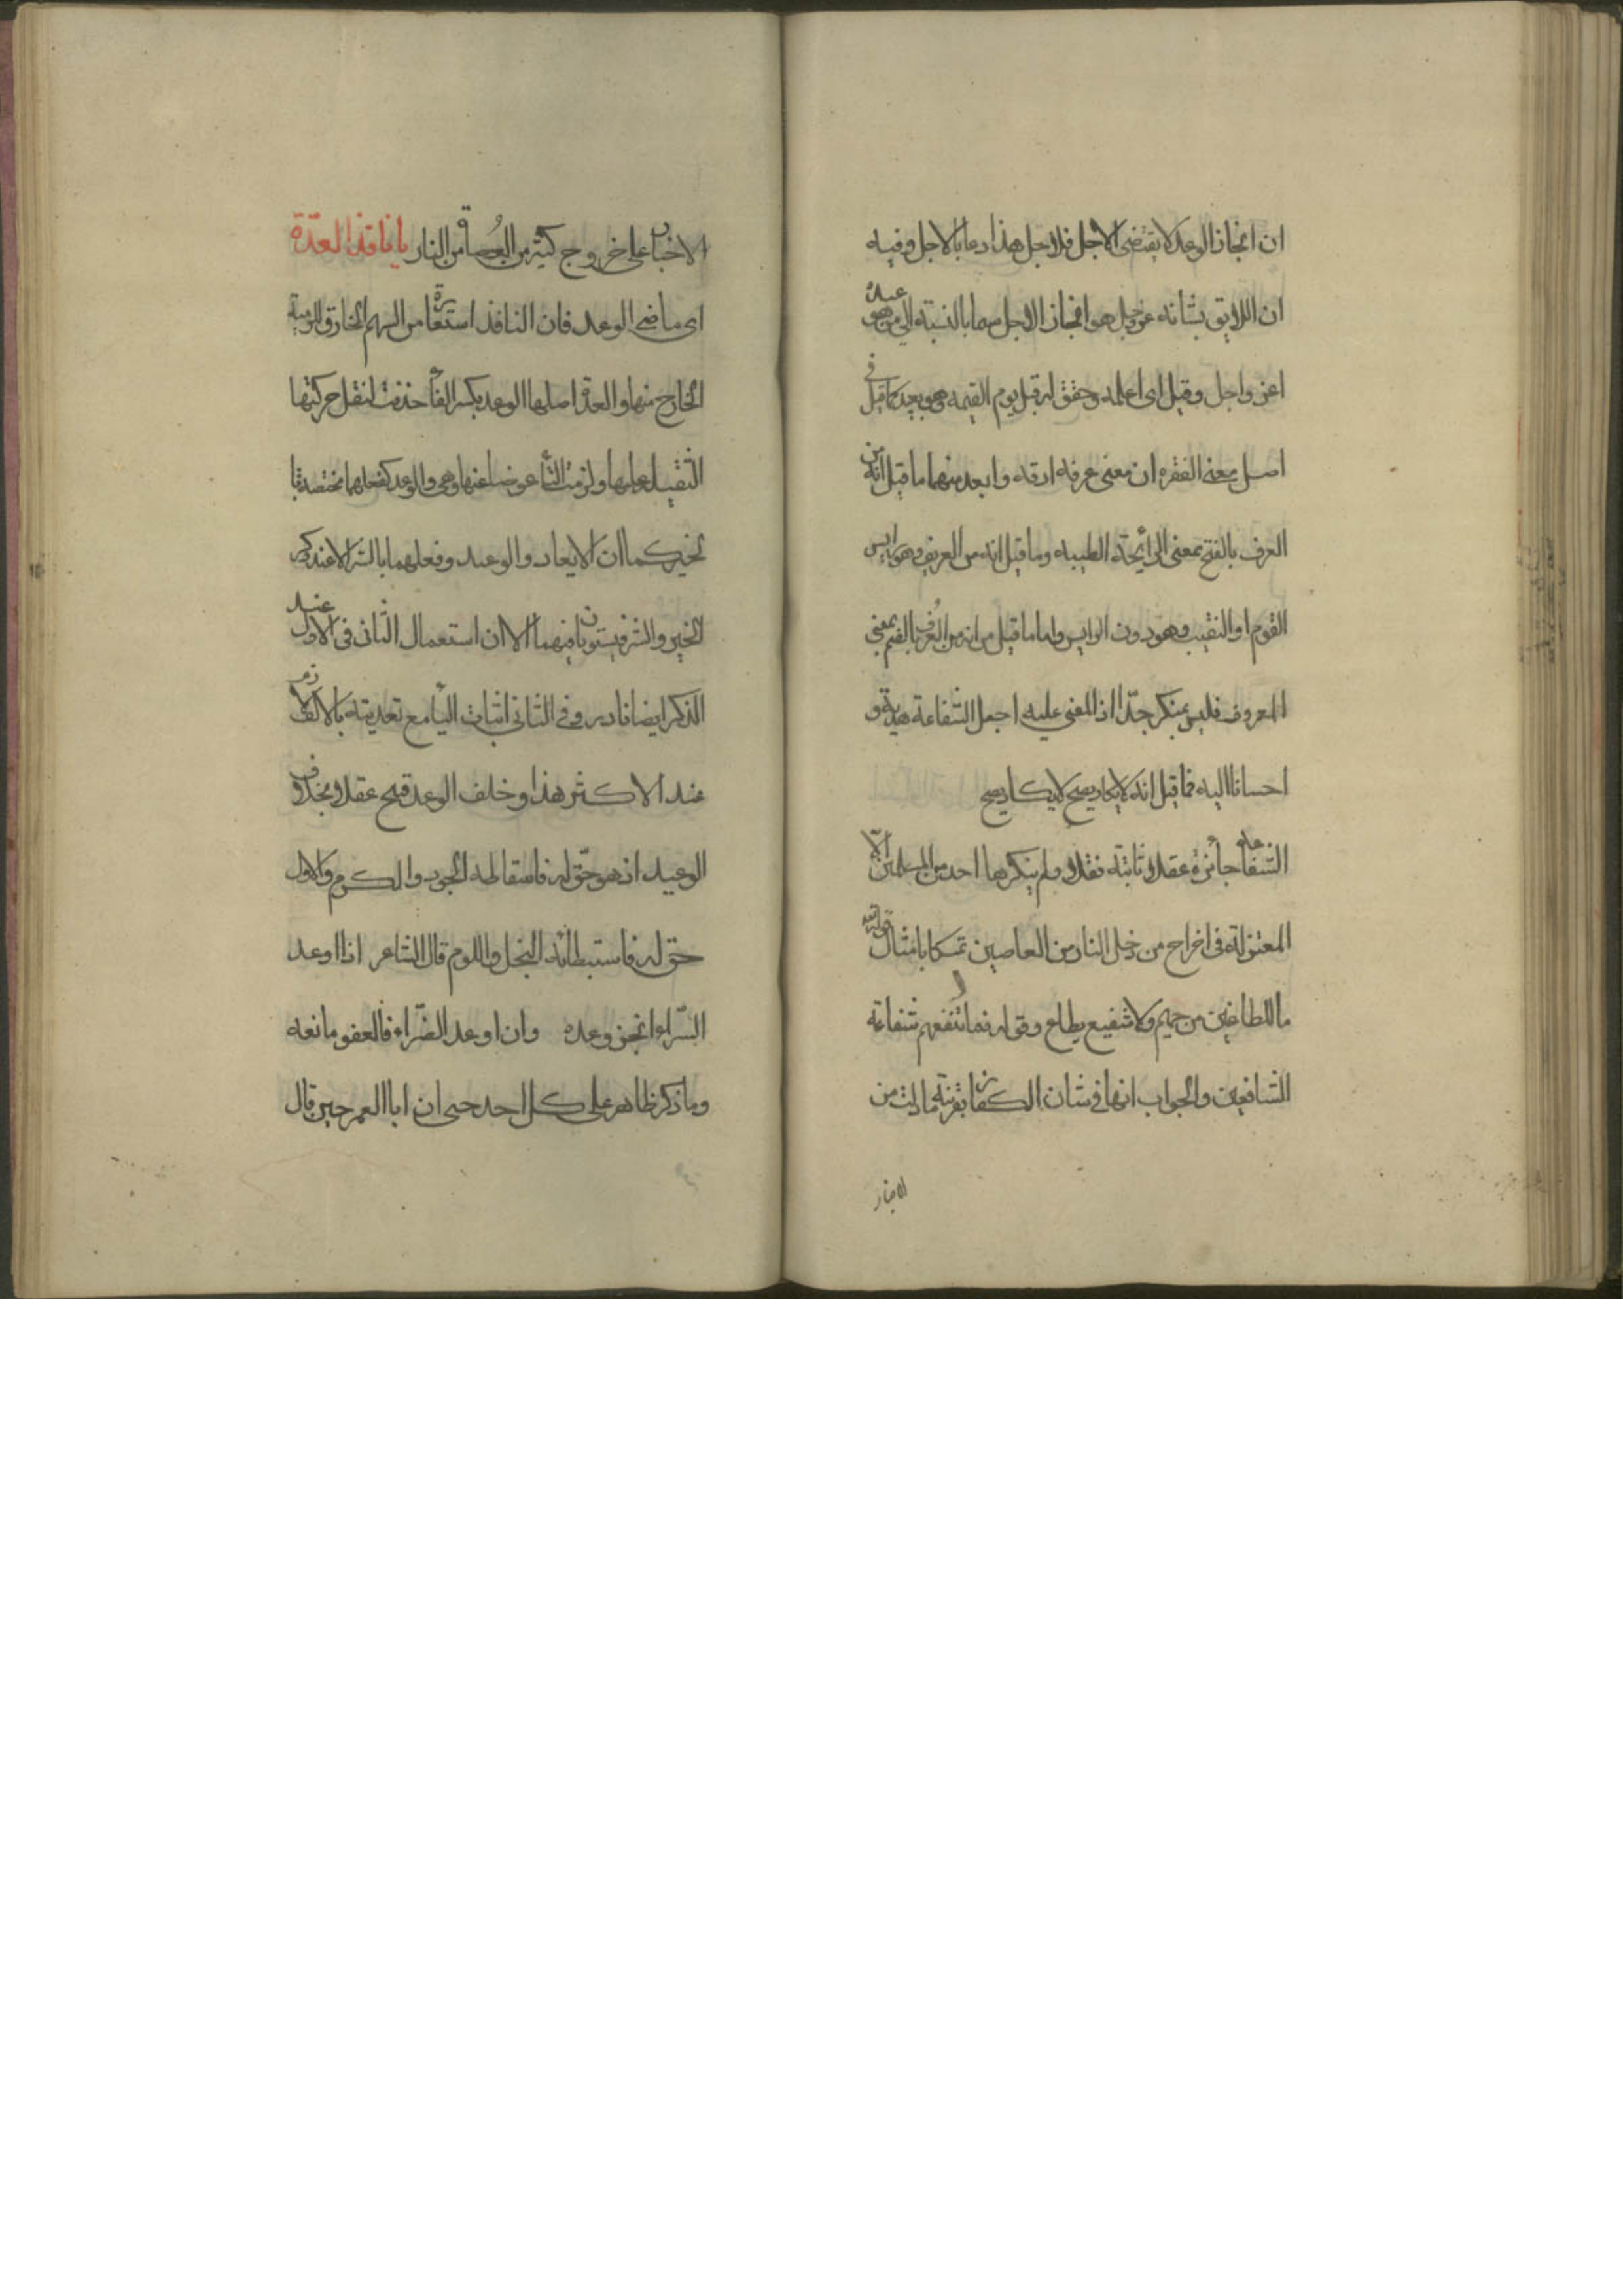 ان انجاز الوعد لا يقتضى الاجل فلاجل هذا دعا بالاجل وفيه
ان اللايق بشانه عز وجل هو انجاز الاجل سيما بالنسبة الى من هو عبده
اعز واجل وقيل اى اعلمه وحقق له قبل يوم القيمة وهو بعيد كما قيل فى
اصل معنى الفقره ان معنى عرفه ارقه وابعد منهما ما قيل انه من
العرف بالفتح بمعنى الرائحة الطيبه وما قيل انه من العريف وهو رايس
القوم او النقيب وهو دون الرايس واما ما قيل من انه من العُرف بالضم بمعنى
المعروف فليس بمنكر جدّا اذ المعنى عليه اجعل الشفاعة هدية و
احسانا اليه فما قيل انه لا يكاد يصح لا يكاد يصح
الشفاعة جائزة عقلا وثابتة نقلا ولم ينكرها احد من المسلمين الّا
المعتزلة فى اخراج من دخل النار من العاصين تمسكا بامثال قوله تعه
ما للظاغين من حميم ولا شفيع يطاع وقوله فما تنفعهم شفاعة
الشافعين والجواب انها فى شان الكفار بقرينة ما دلت من
الاخبار
الاخبار على خروج كثير من العُصاة من النار يا نافذ العدّة
اى ماضى الوعد فان النافذ استعارة من السهم الخارق للرمية
الخارج منها والعدة اصلها الوعد بكسر الفاء حذفت لنقل حركتها
الثقيل عليها ولزمت التاء عوضا عنها وهى والوعد كفعلهما مختصة با
لخير كما ان الايعاد والوعيد وفعلهما بالشر الا عند ذكر
الخير والشر فيستويان فيهما الا ان استعمال الثانى فى الاول عند
الذكر ايضا نادر وفى الثانى اثبات الباء مع تعديته بالالف لازم
عند الاكثر هذا وخلف الوعد قبيح عقلا بخلاف
الوعيد اذ هو حقّ له فاسقاطه الجود والكرم والاول
حق له فاستبطانه البخل واللوم قال الشاعر اذا اوعد
السّراء انجز وعده وان اوعد الضّراء فالعفو مانعه
وما ذكر ظاهر على كل احد حتى ان ابا العمر حين قال